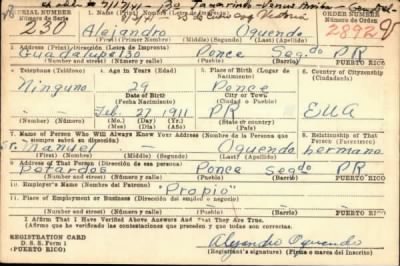 SERIAL NUMBER 1. Name (Print) Nombre (Letra de Imprenta) ORDER NUMBER
Número de Serie Número de Orden
230 Alejandro Oquendo 2892
(First) (Primer Nombre) (Middle) (Segundo) (Last) (Apellido)
2. Address (Print) Dirección (Letra de Imprenta)
Guadalupe 130 Ponce Seg.do PR
(Number and street) (Número y calle) (Town) (Pueblo) (Barrio) PUERTO RICO
3. Telephone (Teléfono) 4. Age in Years (Edad) 5. Place of Birth (Lugar de Nacimiento) 6. Country of Citizenship (Ciudadanía)
Ninguno 29 Ponce
Date of Birth (Fecha Nacimiento) Town or City (Ciudad o Pueblo)
Feb. 27 1911 PR EUA
(Mo.) (Day) (Yr.) State or country
(Mes) (Día) (Año) (Estado o país)
7. Name of Person Who Will Always Know Your Address (Nombre de la Persona que siempre sabrá su dirección) 8. Relationship of That Person (Parentesco)
Sr. Manuel Oquendo hermano
(First) (Nombre) (Middle) (Segundo) (Last) (Apellido)
9. Address of That Person (Dirección de esa persona)
Petardos Ponce Seg.do PR
(Number and street) (Número y calle) (Town) (Pueblo) (Barrio) PUERTO RICO
10. Employer's Name (Nombre del Patrono)
"Propio"
11. Place of Employment or Business (Dirección del empleo o negocio)
(Number and street) (Número y calle) (Town) (Pueblo) (Barrio) PUERTO RICO
I Affirm That I Have Verified Above Answers And That They Are True.
(Afirmo que he verificado las contestaciones que preceden y que todas son ciertas)
REGISTRATION CARD
D. S. S. Form 1
(PUERTO RICO)
Alejandro Oquendo
(Registrant's signature) (Firma del inscrito)